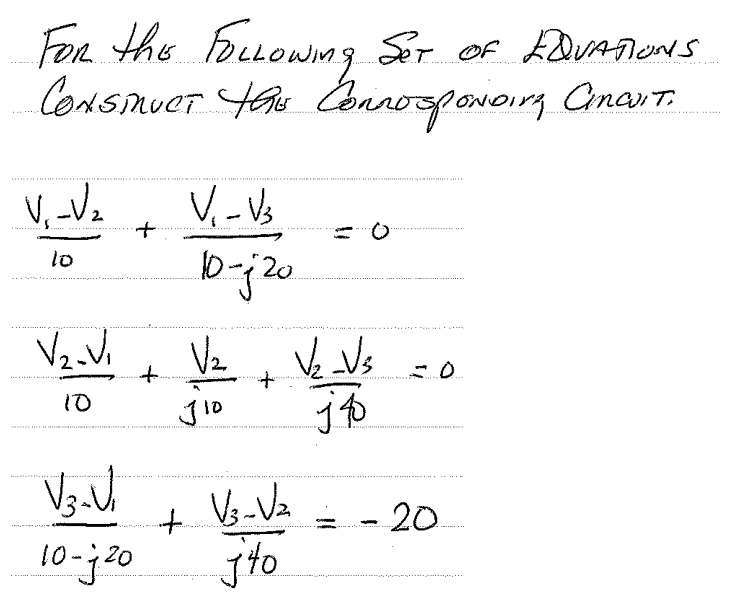 FOR the FOLLOWING SET OF EQUATIONS
CONSTRUCT the CORRESPONDING CIRCUIT.
(V₁-V₂)/10 + (V₁-V₃)/(10-j20) = 0
(V₂-V₁)/10 + V₂/j10 + (V₂-V₃)/j40 = 0
(V₃-V₁)/(10-j20) + (V₃-V₂)/j40 = -20